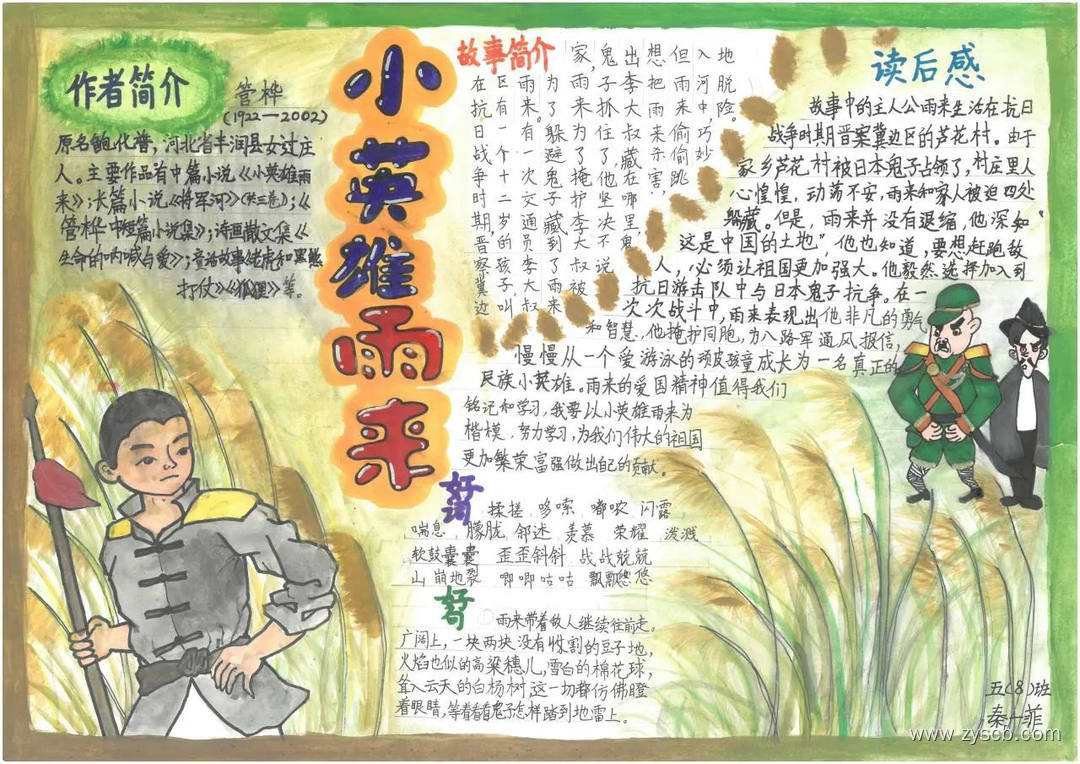 小英雄雨来
作者简介
管桦
(1922—2002)
原名鲍化普，河北省丰润县女过庄
人。主要作品有中篇小说《小英雄雨
来》；长篇小说《将军河》(共三卷)；《
管桦中短篇小说集》；诗画散文集《
生命的呐喊与爱》；童话故事《老虎和黑熊
打仗》《狐狸》等。
故事简介
在抗日战争时期晋察冀边
区有一个十二岁的孩子叫
雨来。有一次交通员李大叔
为了躲避鬼子，藏到了雨来
家，雨来为了掩护李大叔被
鬼子抓住了，他坚决不说
出李大叔藏在哪里，鬼
想把雨来杀害，
但雨来偷偷跳
入河中，巧妙
地脱险。
读后感
故事中的主人公雨来生活在抗日
战争时期晋察冀边区的芦花村。由于
家乡芦花村被日本鬼子占领了，村庄里人
心惶惶，动荡不安，雨来和家人被迫四处
躲藏。但是，雨来并没有退缩，他深知“
这是中国的土地”，他也知道，要想赶跑敌
人，必须让祖国更加强大。他毅然选择加入到
抗日游击队中与日本鬼子抗争。在一
次次战斗中，雨来表现出他非凡的勇气
和智慧，他掩护同胞，为八路军通风报信，
慢慢从一个爱游泳的顽皮孩童成长为一名真正的
民族小英雄。雨来的爱国精神值得我们
铭记和学习，我要以小英雄雨来为
楷模，努力学习，为我们伟大的祖国
更加繁荣富强做出自己的贡献。
好词
揉搓 哆嗦 嘟哝 闪露
喘息 朦胧 邻述 羡慕 荣耀 泼溅
软鼓囊囊 歪歪斜斜 战战兢兢
山崩地裂 唧唧咕咕 飘飘悠悠
好句
雨来带着敌人继续往前走。
广阔上，一块两块没有收割的豆子地，
火焰也似的高粱穗儿，雪白的棉花球，
耸入云天的白杨树，这一切都仿佛瞪
着眼睛，等着看鬼子怎样踏到地雷上。
五(8)班
秦一菲
www.zyscb.com